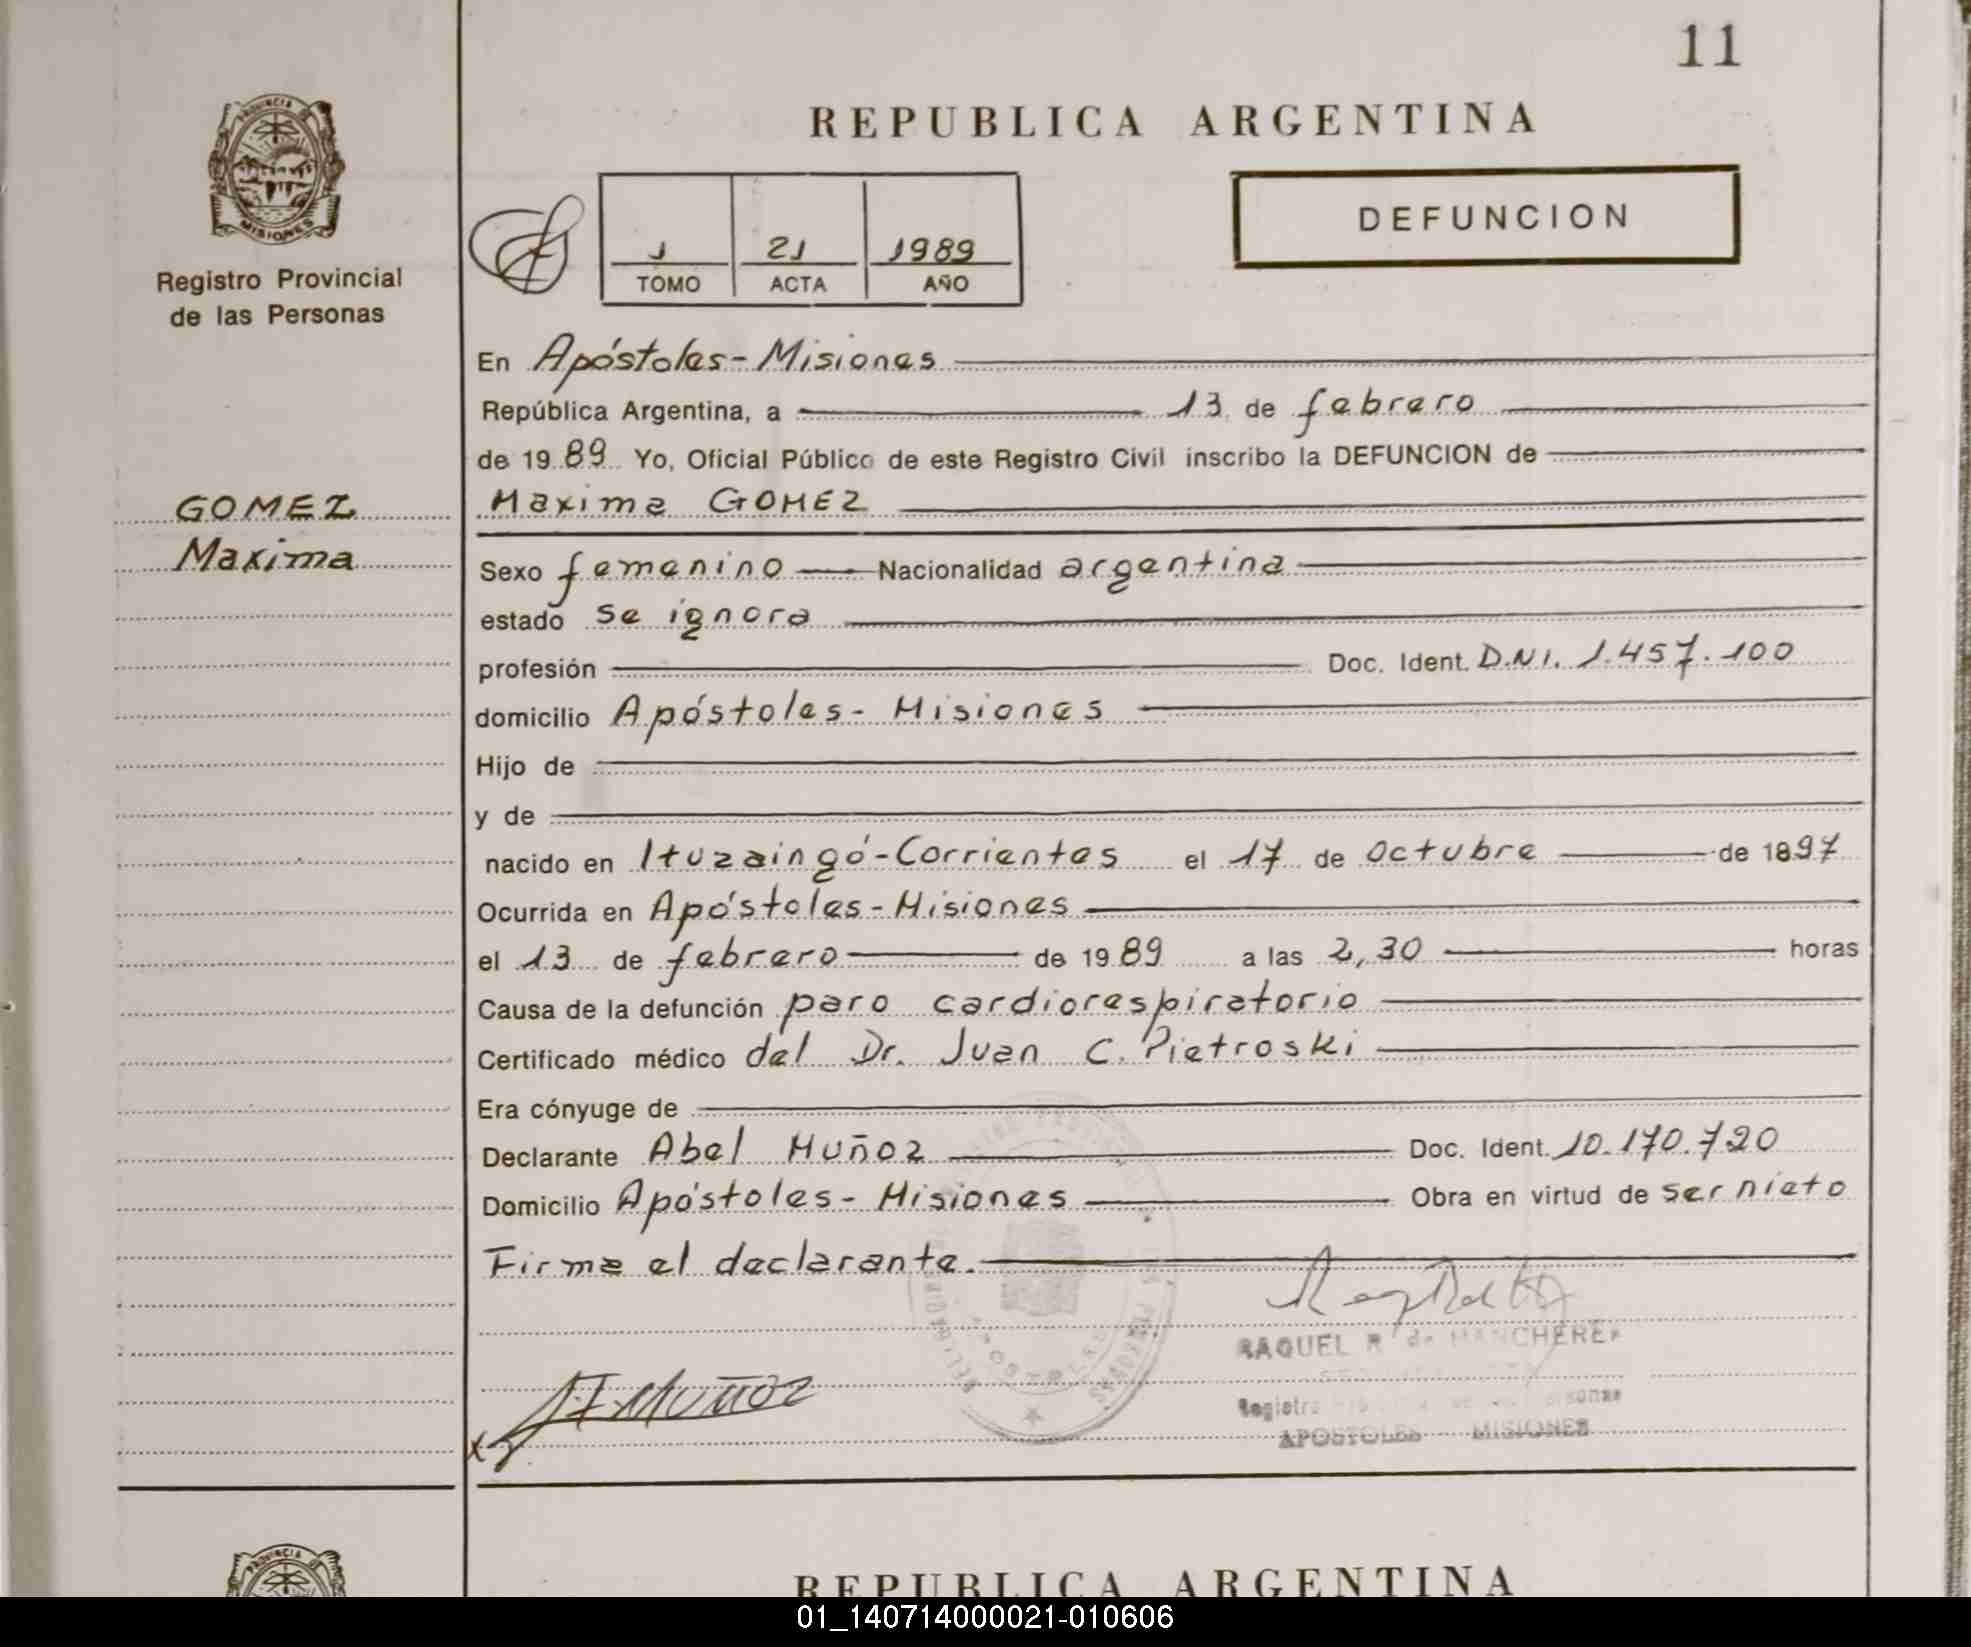 11
PROVINCIA DE
MISIONES
Registro Provincial
de las Personas
REPUBLICA ARGENTINA
1 21 1989
TOMO ACTA AÑO
DEFUNCION
En Apóstoles - Misiones
República Argentina, a 13 de febrero
de 19 89 Yo, Oficial Público de este Registro Civil inscribo la DEFUNCION de
GOMEZ
Maxima
Maxima GOMEZ
Sexo femenino Nacionalidad argentina
estado se ignora
profesión Doc. Ident. D.N.I. 1.457.100
domicilio Apóstoles - Misiones
Hijo de
y de
nacido en Ituzaingó - Corrientes el 17 de Octubre de 1897
Ocurrida en Apóstoles - Misiones
el 13 de febrero de 19 89 a las 2,30 horas
Causa de la defunción paro cardiorespiratorio
Certificado médico del Dr. Juan C. Pietroski
Era cónyuge de
Declarante Abel Muñoz Doc. Ident. 10.170.720
Domicilio Apóstoles - Misiones Obra en virtud de ser nieto
Firma el declarante.
RAQUEL R. de
Registro
APOSTOLES MISIONES
MUÑOZ
PROVINCIA DE
REPUBLICA ARGENTINA
01_140714000021-010606